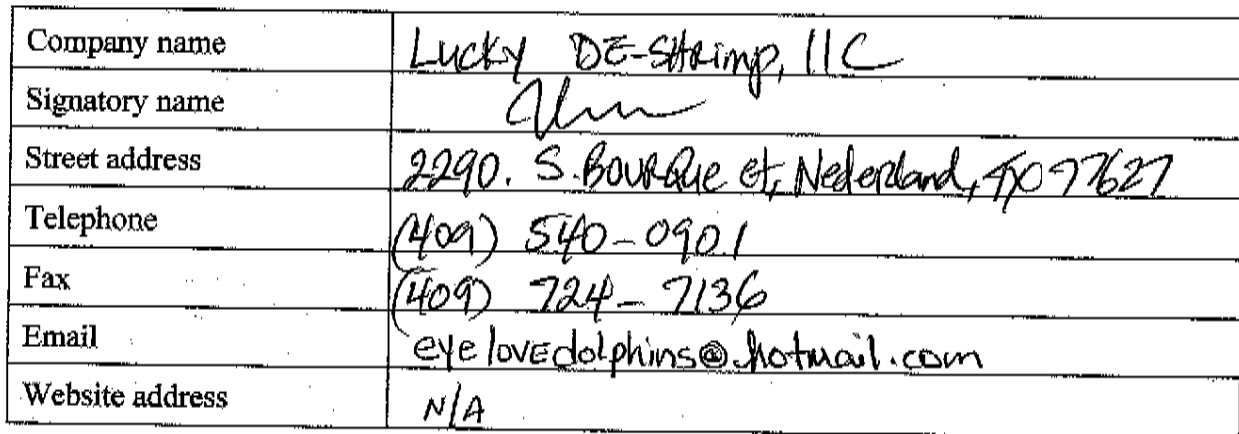 Company name Lucky DE-SHRimp, llC
Signatory name
Street address 2290. S. BOURQue Ct, Nederland, TX 77627
Telephone (409) 540-0901
Fax (409) 724-7136
Email eyelovEdolphins@hotmail.com
Website address N/A